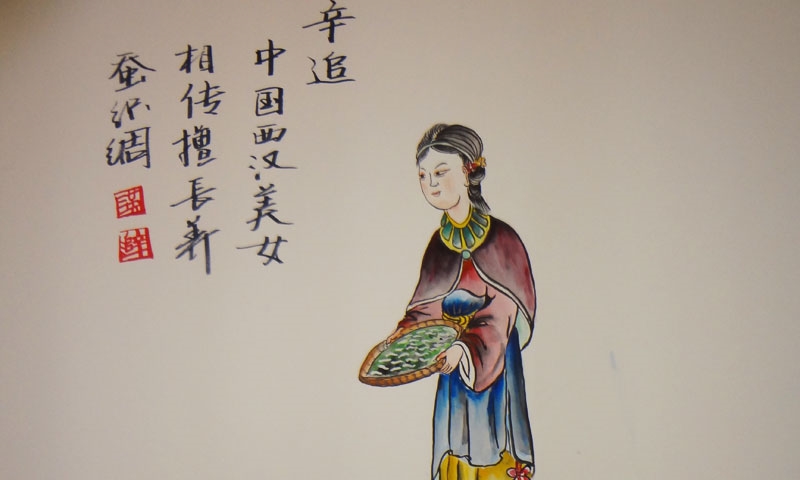 辛追
中国西汉美女
相传擅长养
蚕织绸